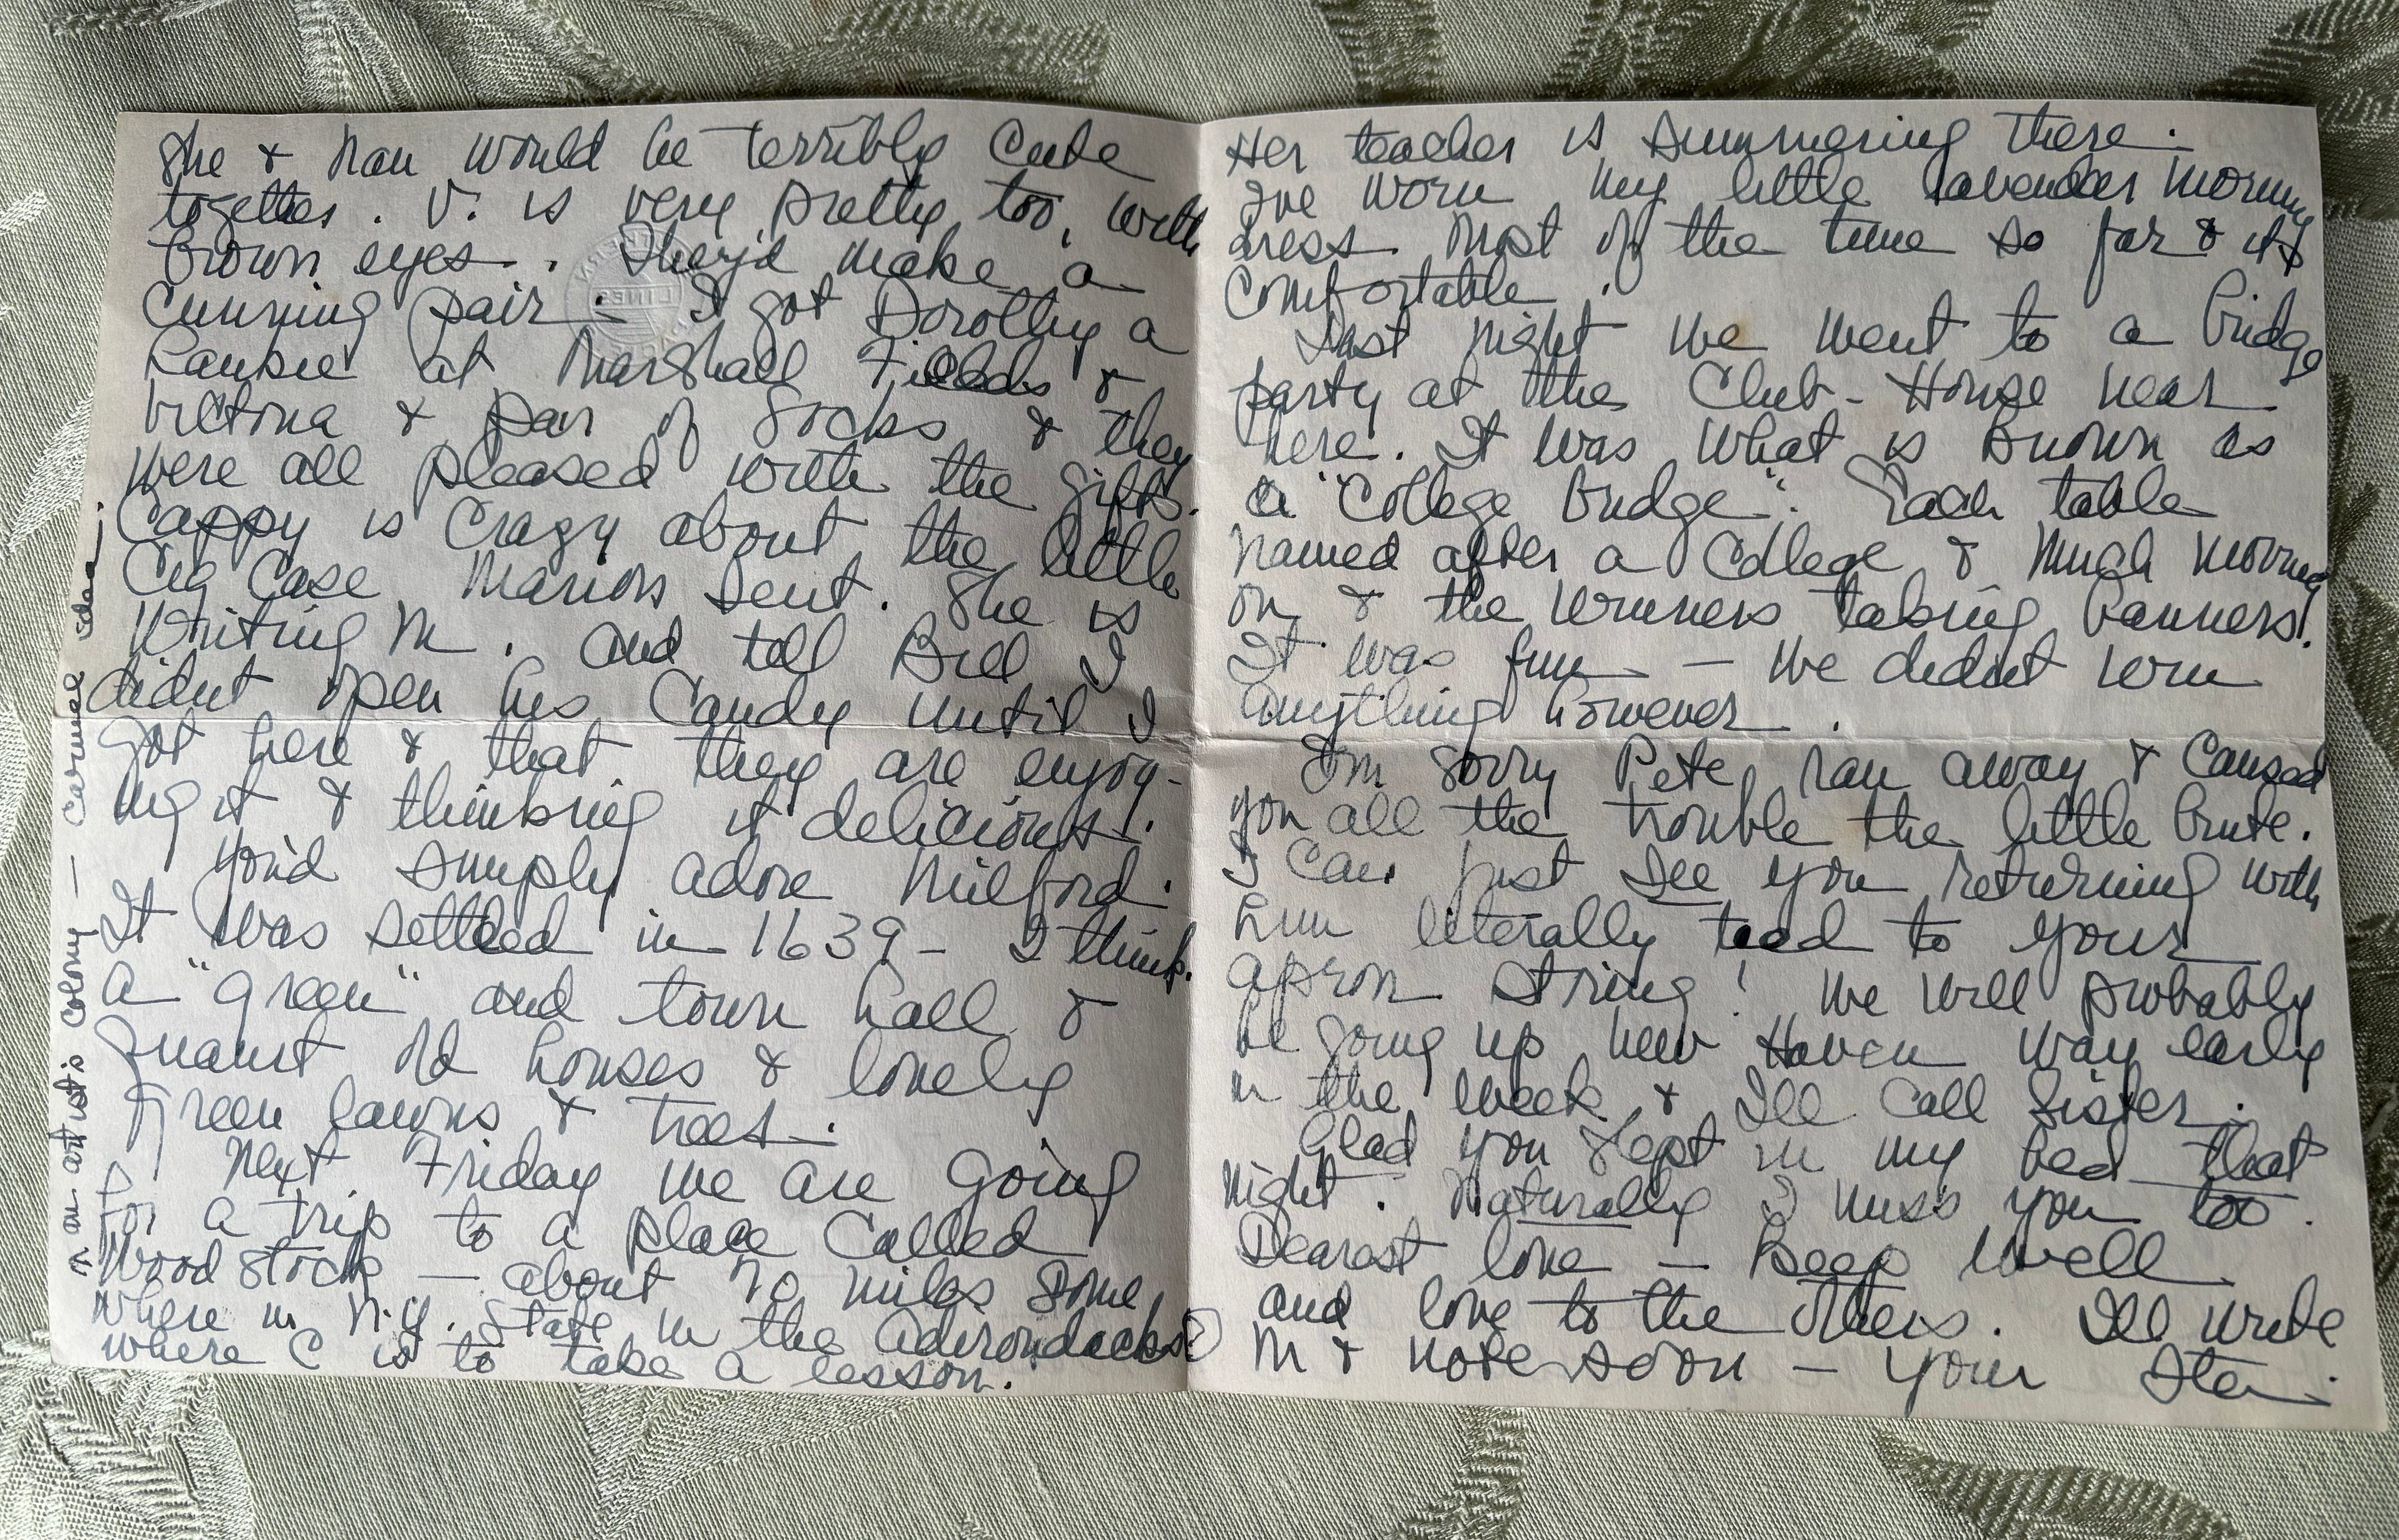 She & Nan would be terribly cute
together. V. is very pretty too, with
brown eyes. They'd make a
cunning pair. I got Dorothy a
hankie at Marshall Fields &
Victoria a pair of socks & they
were all pleased with the gifts.
Cappy is crazy about the little
Cig Case Marion sent. She is
writing M. and tell Bill I
didnt open his Candy until I
got here & that they are enjoy-
ing it & thinking it delicious.
You'd simply adore Milford.
It was settled in 1639 - I think.
a "green" and town hall &
quaint old houses & lovely
green lawns & trees.
Next Friday we are going
for a trip to a place called
Woodstock — about 70 miles some
where in N.Y. State in the Adirondacks(?)
where C is to take a lesson.
in an artist's colony — Carmel idea.
Her teacher is summering there.
I've worn my little lavender morning
dress most of the time so far & its
comfortable.
Last night we went to a bridge
party at the Club-House near
here. It was what is known as
a "College bridge". Each table
named after a College & much moving
on & the winners taking banners.
It was fun — we didnt win
anything however.
I'm sorry Pete ran away & caused
you all the trouble the little brute.
I can just see you returning with
him literally tied to your
apron string! We will probably
be going up New Haven way early
in the week & I'll call Sister.
Glad you slept in my bed that
night. Naturally I miss you too.
Dearest love — Keep well
and love to the others. I'll write
M & note soon — Your